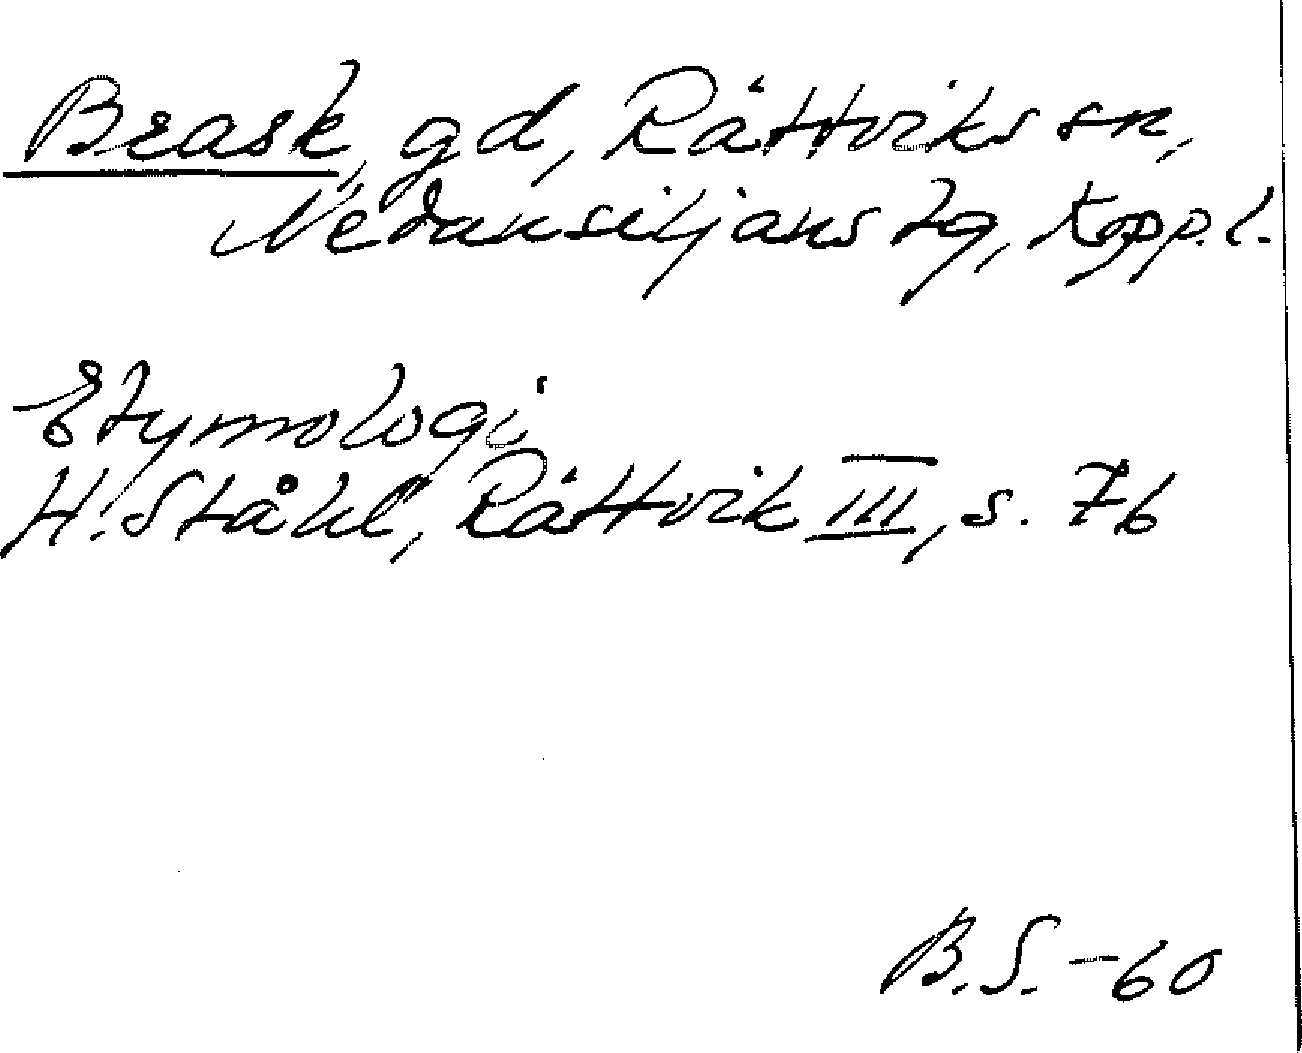 Brask, gd, Rättviks sn,
Nedansiljans tg, Kopp. l.
Etymologi
H. Ståhl, Rättvik III, s. 76
B. S. -60